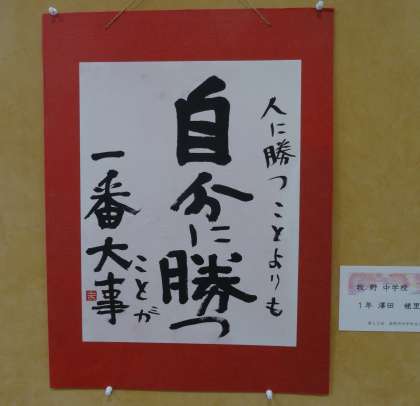 人に勝つことよりも
自分に勝つ
ことが
一番大事
牧野 中学校
1年 澤田 穂里